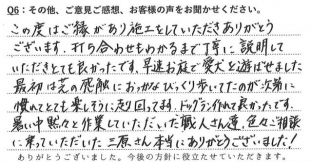 Q6：その他、ご意見ご感想、お客様の声をお聞かせください。
この度はご縁があり施工をしていただきありがとう
ございます。打ち合わせもわかるまで丁寧に説明して
いただきとても良かったです。早速お庭で愛犬を遊ばせました。
最初は芝の感触におっかなびっくり歩いてたのが次第に
慣れてとても楽しそうに走り回ってます。ドッグラン作れて良かったです。
暑い中黙々と作業していただいた職人さん達、色々ご相談
に乗っていただいた三原さん本当にありがとうございました!
ありがとうございました。今後の方針に役立たせていただきます。